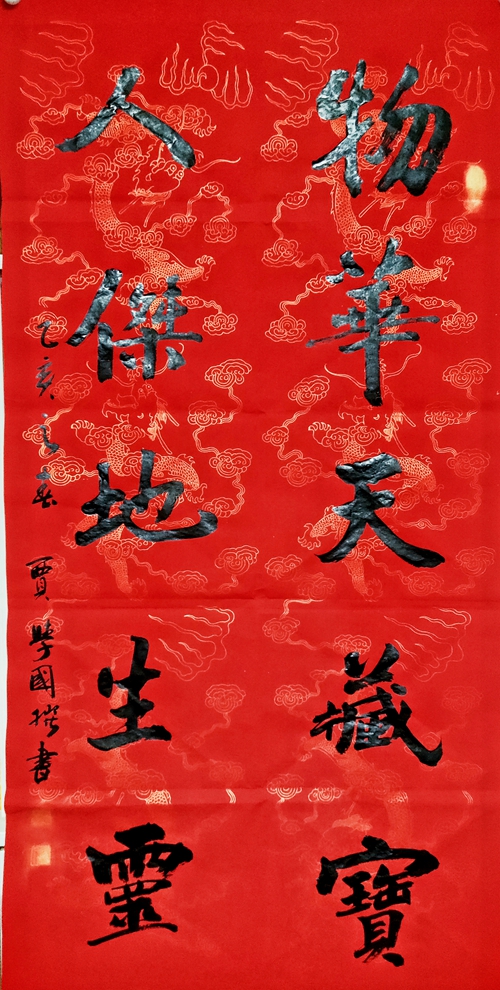 物華天藏寶
人傑地生靈
乙亥之春 賈學國撰書